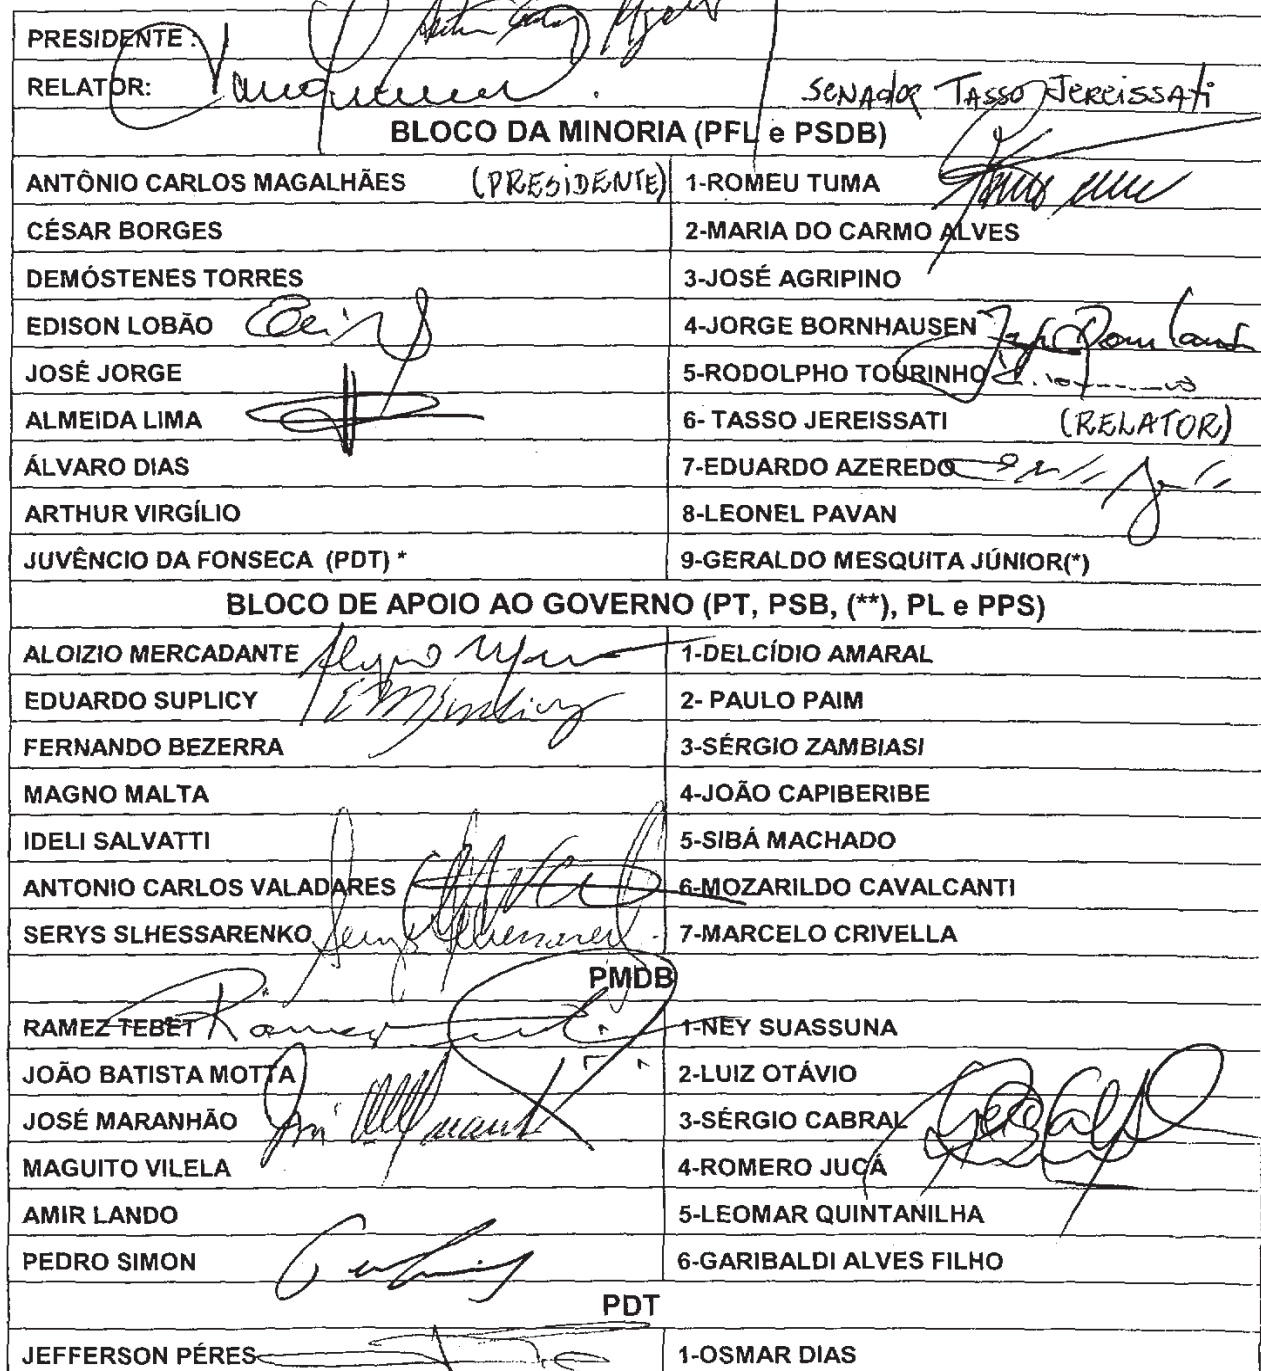 PRESIDENTE :
RELATOR:
SENADOR TASSO JEREISSATI
BLOCO DA MINORIA (PFL e PSDB)
ANTÔNIO CARLOS MAGALHÃES (PRESIDENTE) 1-ROMEU TUMA
CÉSAR BORGES 2-MARIA DO CARMO ALVES
DEMÓSTENES TORRES 3-JOSÉ AGRIPINO
EDISON LOBÃO 4-JORGE BORNHAUSEN
JOSÉ JORGE 5-RODOLPHO TOURINHO
ALMEIDA LIMA 6- TASSO JEREISSATI (RELATOR)
ÁLVARO DIAS 7-EDUARDO AZEREDO
ARTHUR VIRGÍLIO 8-LEONEL PAVAN
JUVÊNCIO DA FONSECA (PDT) * 9-GERALDO MESQUITA JÚNIOR(*)
BLOCO DE APOIO AO GOVERNO (PT, PSB, (**), PL e PPS)
ALOIZIO MERCADANTE 1-DELCÍDIO AMARAL
EDUARDO SUPLICY 2- PAULO PAIM
FERNANDO BEZERRA 3-SÉRGIO ZAMBIASI
MAGNO MALTA 4-JOÃO CAPIBERIBE
IDELI SALVATTI 5-SIBÁ MACHADO
ANTONIO CARLOS VALADARES 6-MOZARILDO CAVALCANTI
SERYS SLHESSARENKO 7-MARCELO CRIVELLA
PMDB
RAMEZ TEBET 1-NEY SUASSUNA
JOÃO BATISTA MOTTA 2-LUIZ OTÁVIO
JOSÉ MARANHÃO 3-SÉRGIO CABRAL
MAGUITO VILELA 4-ROMERO JUCÁ
AMIR LANDO 5-LEOMAR QUINTANILHA
PEDRO SIMON 6-GARIBALDI ALVES FILHO
PDT
JEFFERSON PÉRES 1-OSMAR DIAS